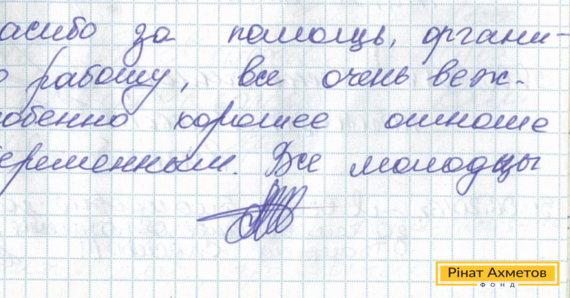 асибо за помощь, органи-
о работу, все очень веж-
обенно хорошее отноше
еременным. Все молодцы
Рінат Ахметов
ФОНД